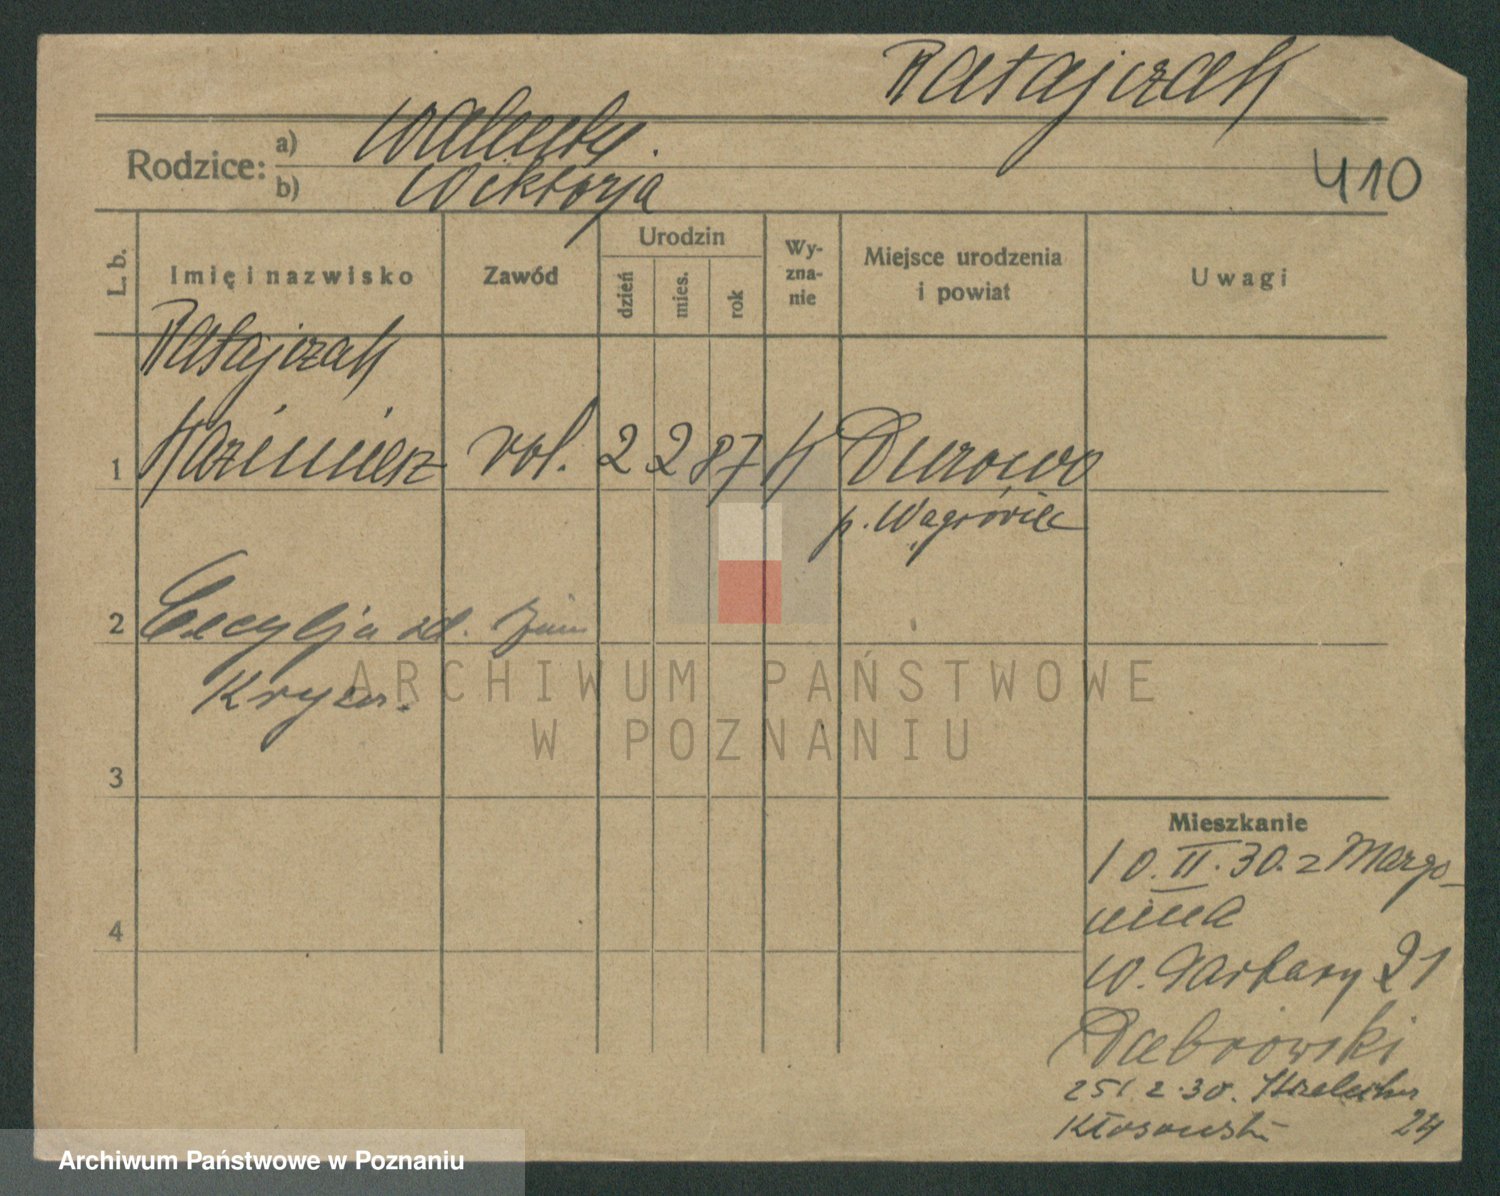 Ratajczak
Rodzice: a) Walenty.
b) Wiktorja
410
L. b.
Imię i nazwisko
Zawód
Urodzin
dzień
mies.
rok
Wy-
zna-
nie
Miejsce urodzenia
i powiat
Uwagi
Ratajczak
1 Kazimierz rol. 2 2 87 K Durowo
p. Wągrówiec
2 Cecylja zd.
3
4
ARCHIWUM PAŃSTWOWE
W POZNANIU
Mieszkanie
10.II.30. z Margo-
nina
W. Garbary 21
Dąbrowski
25/.2.30. Strzelecka
Kłosowski 24
Archiwum Państwowe w Poznaniu